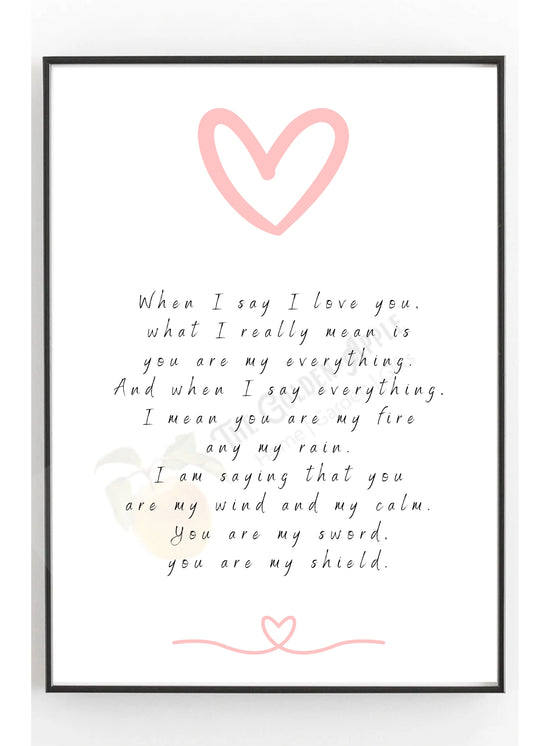 When I say I love you,
what I really mean is
you are my everything.
And when I say everything,
I mean you are my fire
any my rain.
I am saying that you
are my wind and my calm.
You are my sword,
you are my shield.
THE GOLDEN APPLE
Home | Garden | Gifts